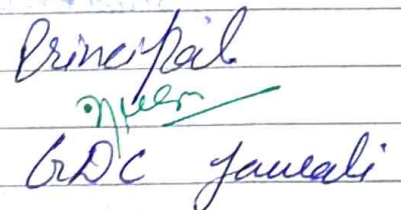 Principal
GDC Jawali